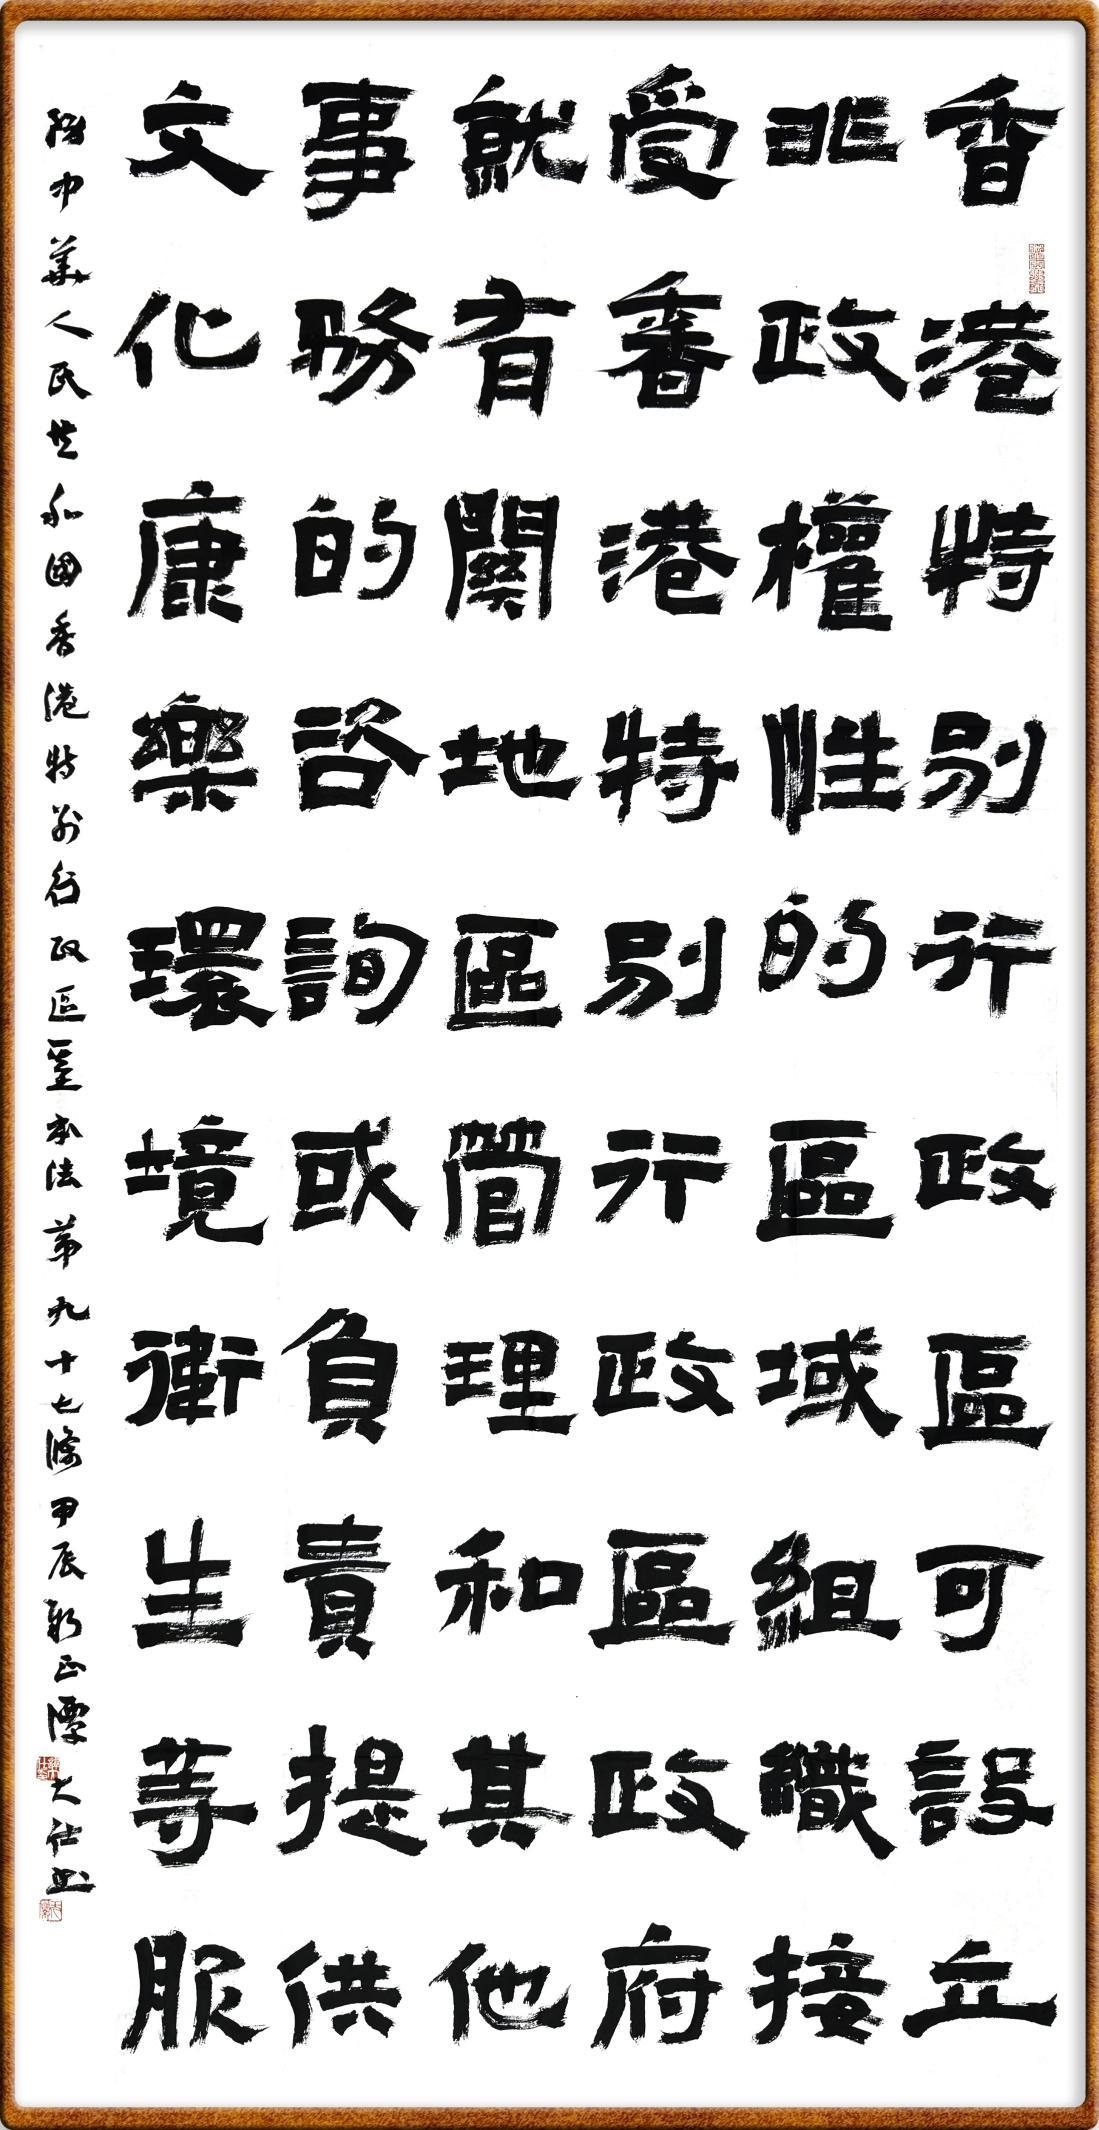 香港特别行政區可設立
非政權性的區域組織接
受香港特别行政區政府
就有關地區管理和其他
事務的咨詢或負責提供
文化康樂環境衛生等服
錄中華人民共和國香港特別行政區基本法第九十七條甲辰新正譚大仕書